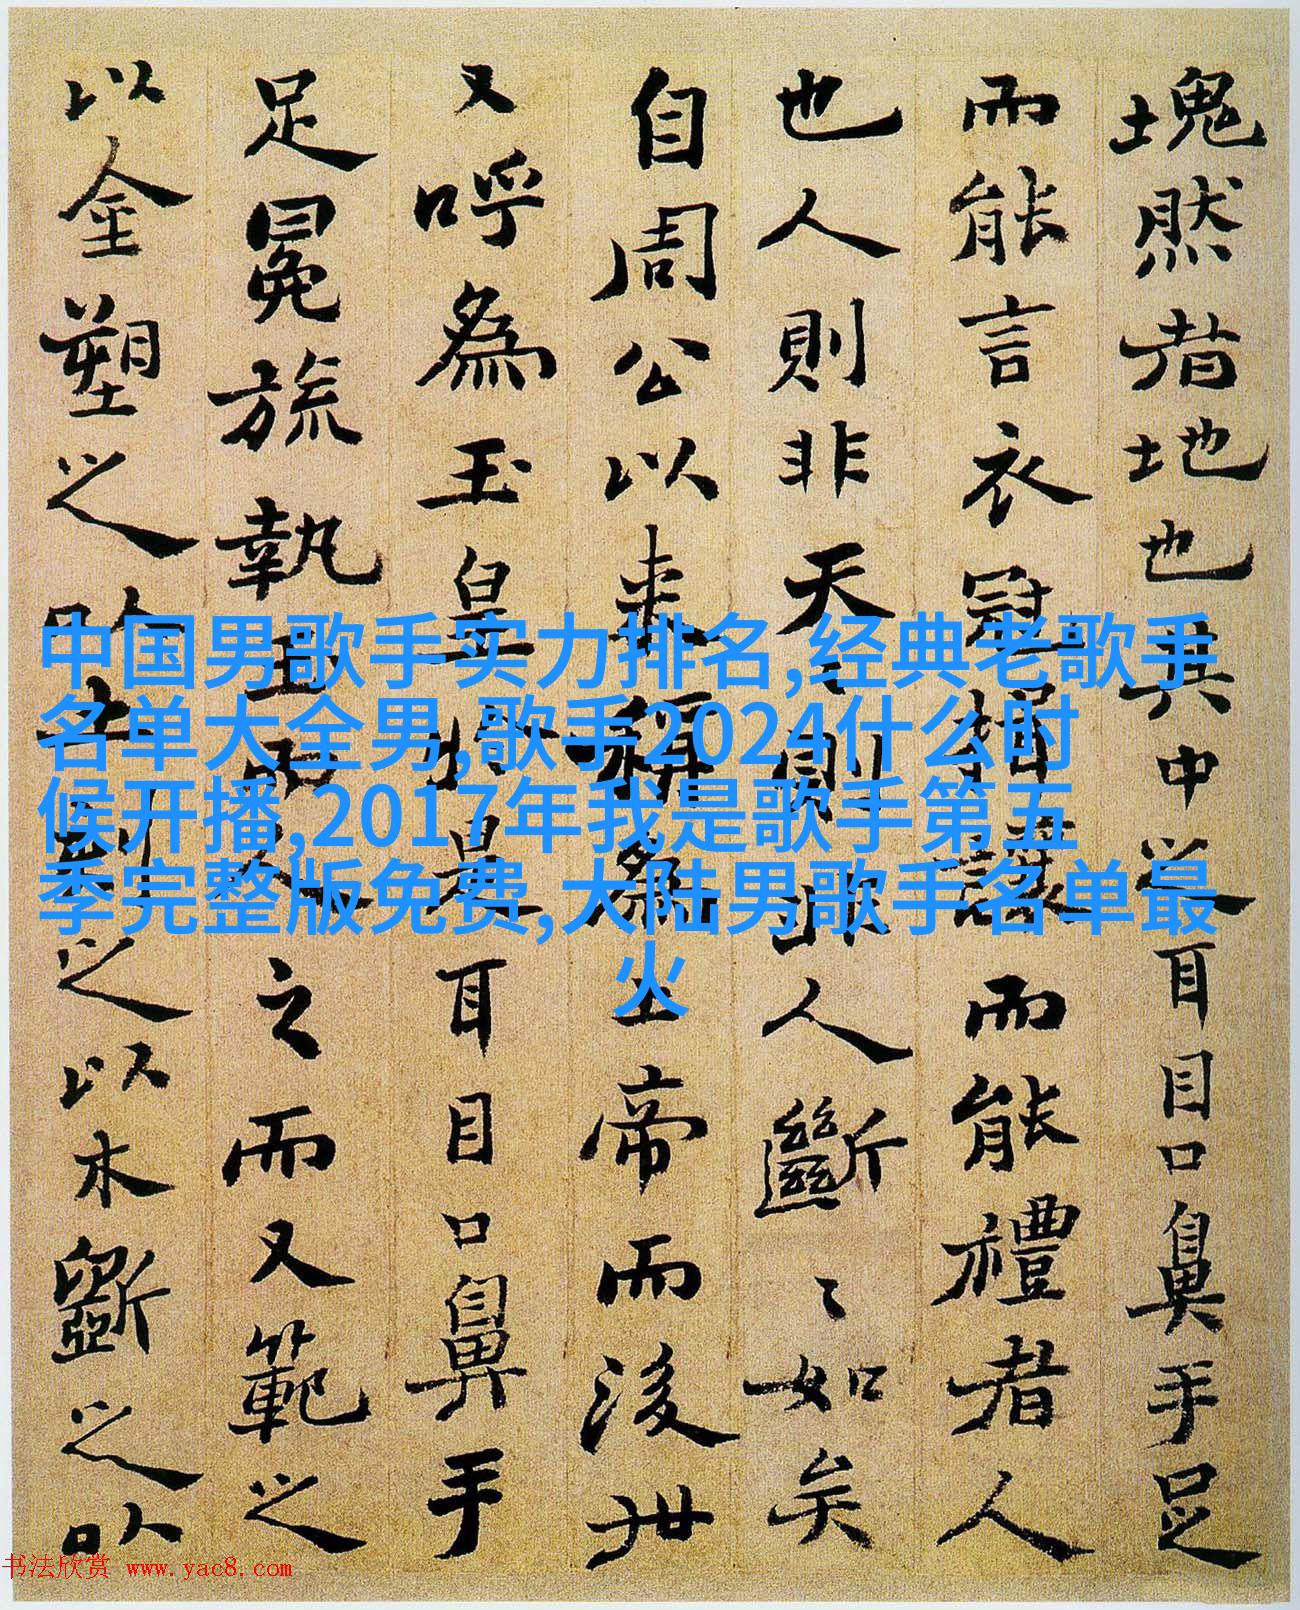 塊然者地也其中之耳目口鼻手足
而能言衣冠揖讓而能禮者人
也人則非天〻則非人斷〻如矣
自周公以来稱為上帝而後世
又呼為玉皇於是耳目口鼻手
足冕旒執玉而人之而又範之
以金塑之以土刻之以木斲之以
中国男歌手实力排名,经典老歌手
名单大全男,歌手2024什么时
候开播,2017年我是歌手第五
季完整版免费,大陆男歌手名单最
火
书法欣赏 www.yac8.com